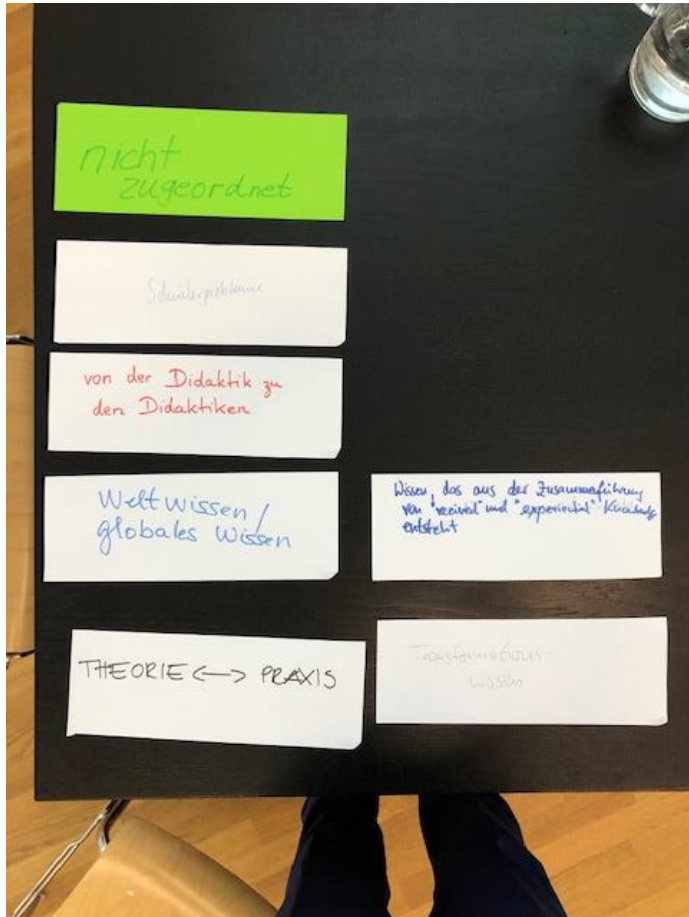 nicht
zugeordnet
Schülerprobleme
von der Didaktik zu
den Didaktiken
Weltwissen/
globales Wissen
Wissen, das aus der Zusammenführung
von "received" und "experiential" Knowledge
entsteht
THEORIE <--> PRAXIS
Transformations-
wissen